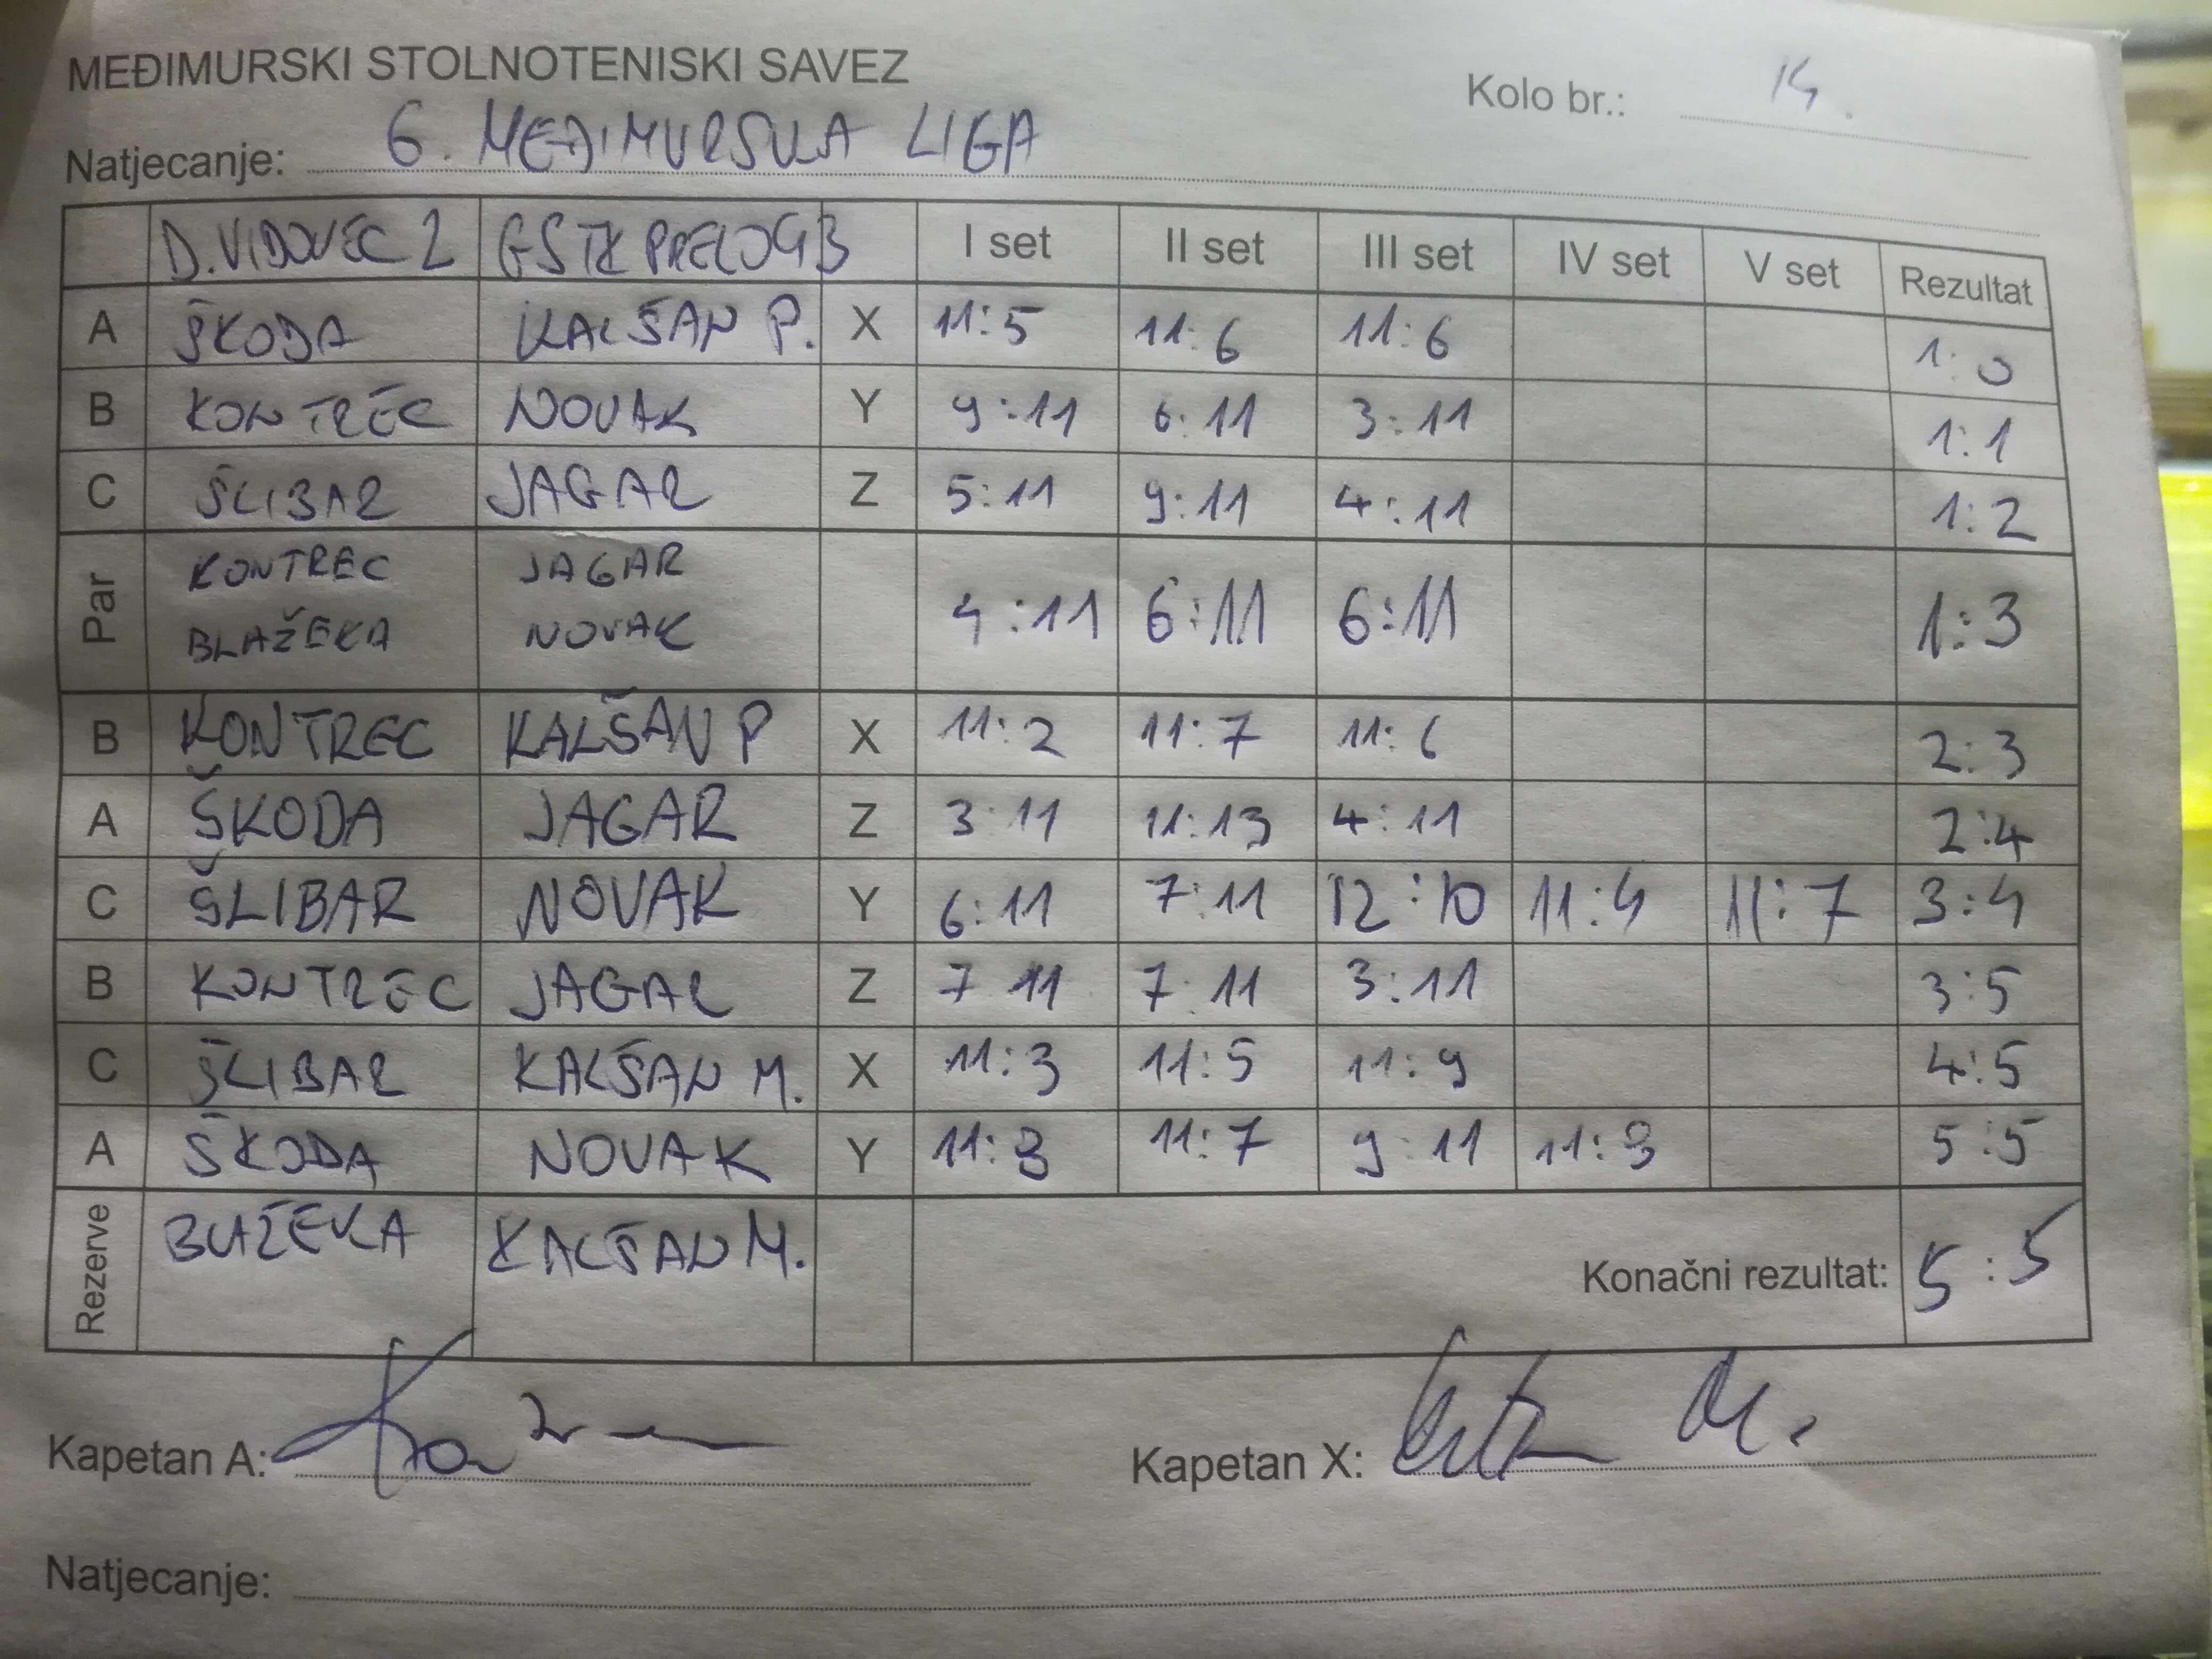 MEĐIMURSKI STOLNOTENISKI SAVEZ
Kolo br.: 14.
Natjecanje: 6. MEĐIMURSKA LIGA
D. VIDOVEC 2 GSTK PRELOG 3 I set II set III set IV set V set Rezultat
A ŠKODA KALŠAN P. X 11:5 11:6 11:6 1:0
B KONTREC NOVAK Y 9:11 6:11 3:11 1:1
C ŠLIBAR JAGAR Z 5:11 9:11 4:11 1:2
Par KONTREC JAGAR 4:11 6:11 6:11 1:3
BLAŽEKA NOVAK
B KONTREC KALŠAN P X 11:2 11:7 11:6 2:3
A ŠKODA JAGAR Z 3:11 11:13 4:11 2:4
C ŠLIBAR NOVAK Y 6:11 7:11 12:10 11:4 11:7 3:4
B KONTREC JAGAR Z 7:11 7:11 3:11 3:5
C ŠLIBAR KALŠAN M. X 11:3 11:5 11:9 4:5
A ŠKODA NOVAK Y 11:8 11:7 9:11 11:8 5:5
Rezerve BLAŽEKA KALŠAN M. Konačni rezultat: 5:5
Kapetan A: Kapetan X:
Natjecanje: